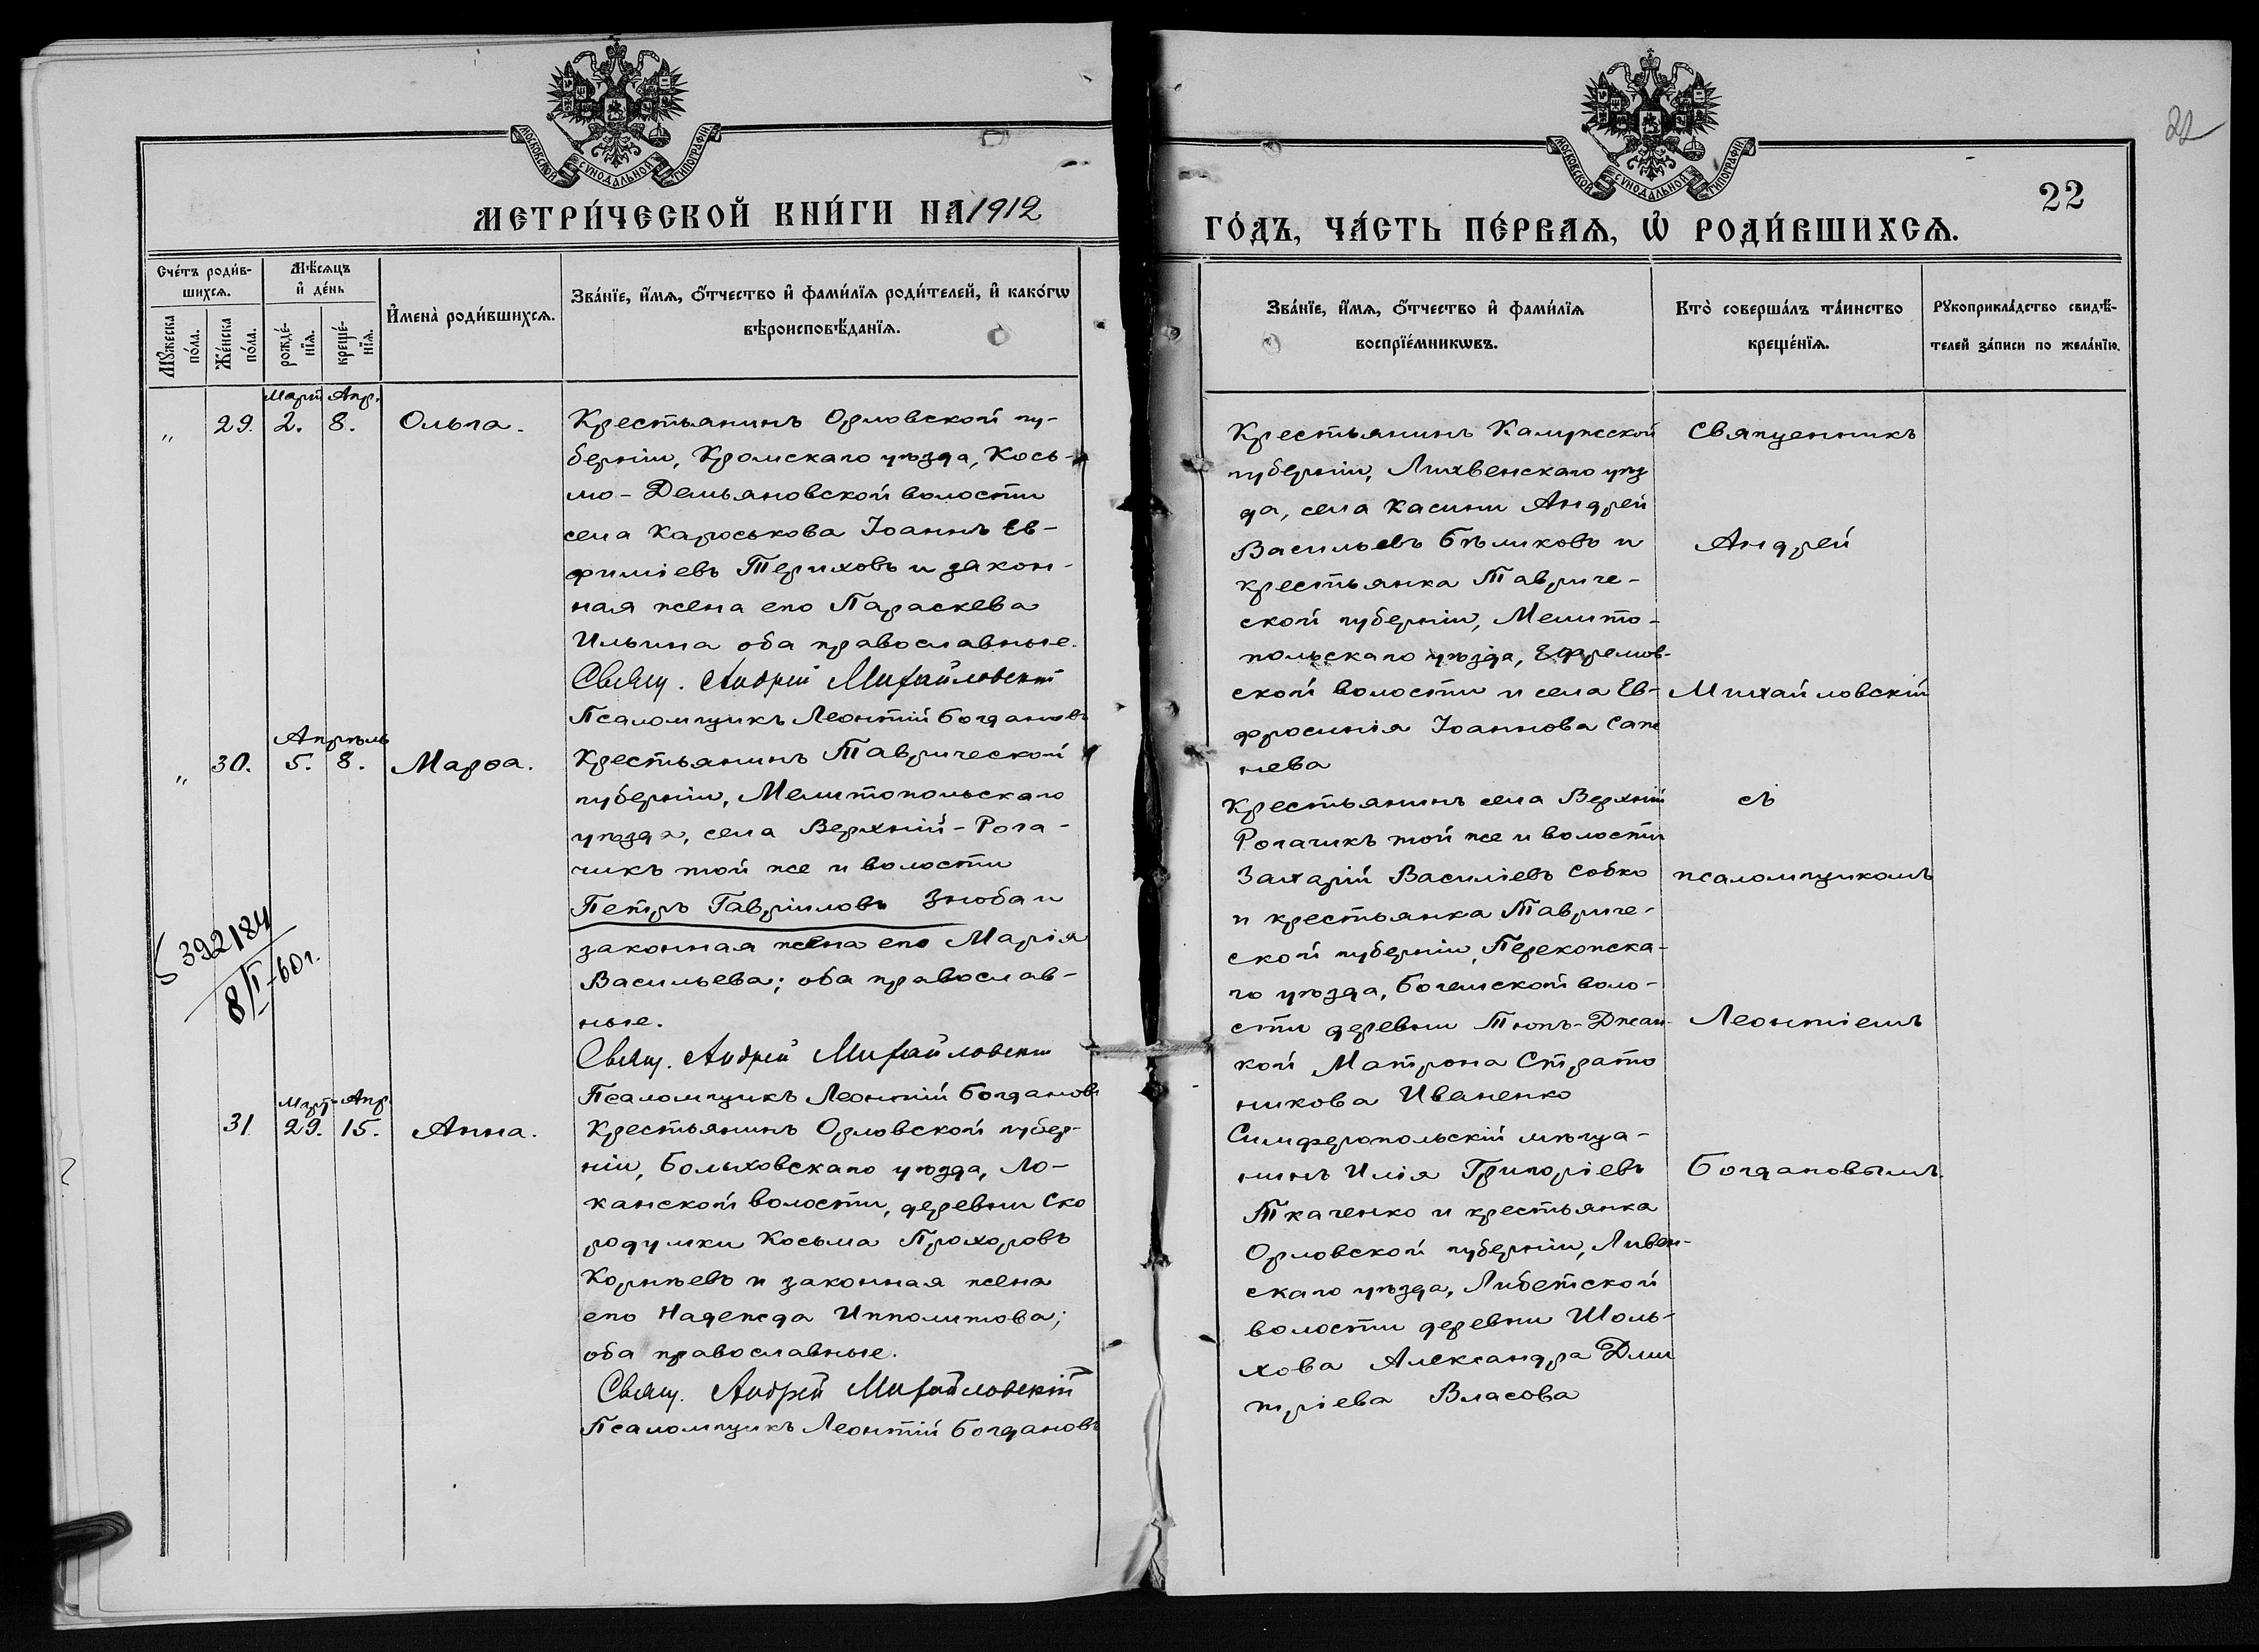 МОСКОВСКОЙ СУНОДАЛЬНОЙ ТИПОГРАФІИ
МЕТРИ́ЧЕСКОЙ КНИ́ГИ НА 1912
Сче́тъ роди́в-
шихсѧ.
Мѣ́сѧцъ
и҆ де́нь
Мꙋ́жеска
по́ла.
Же́нска
по́ла.
рожде́-
нїѧ.
креще́-
нїѧ.
И҆мена̀ роди́вшихсѧ.
Зва́нїе, и҆́мѧ, ѻ҆́тчество и҆ фами́лїѧ роди́телей, и҆ како́гѡ
вѣроисповѣ́данїѧ.
Мартъ Апр.
„ 29. 2. 8. Ольга.
Крестьянинъ Орловской гу-
берніи, Кромскаго уѣзда, Кось-
мо-Демьяновской волости
села Кароськова Іоаннъ Ев-
фиміевъ Териховъ и закон-
ная жена его Параскева
Ильина оба православные.
Свящ. Андрей Михайловскій
Псаломщикъ Леонтій Богдановъ
Апрѣль
„ 30. 5. 8. Марѳа.
Крестьянинъ Таврической
губерніи, Мелитопольскаго
уѣзда, села Верхній-Рога-
чикъ той же и волости
Петръ Гавріиловъ Знюба и
законная жена его Марія
Васильева; оба православ-
ные.
Свящ. Андрей Михайловскій
Псаломщикъ Леонтій Богдановъ
392184
8/I-60г.
Мрт. Апр.
31 29. 15. Анна.
Крестьянинъ Орловской губер-
ніи, Болховскаго уѣзда, Ло-
канской волости, деревни Ско
родумки Косьма Прохоровъ
Корнѣевъ и законная жена
его Надежда Ипполитова;
оба православные.
Свящ. Андрей Михайловскій
Псаломщикъ Леонтій Богдановъ
22
22
МОСКОВСКОЙ СУНОДАЛЬНОЙ ТИПОГРАФІИ
ГО́ДЪ, ЧА́СТЬ ПЕ́РВАѦ, Ѡ҆ РОДИ́ВШИХСѦ.
Зва́нїе, и҆́мѧ, ѻ҆́тчество и҆ фами́лїѧ
воспрїе́мникѡвъ.
Кто̀ соверша́лъ та́инство
креще́нїѧ.
Рꙋкоприкла́дство свидѣ́-
телей за́писи по жела́нїю.
Крестьянинъ Калужской
губерніи, Лихвенскаго уѣз
да, села Касини Андрей
Васильевъ Бѣликовъ и
крестьянка Тавриче-
ской губерніи, Мелито-
польскаго уѣзда, Ефремов-
ской волости и села Ев-
фросинія Іоаннова Сапе
нева
Крестьянинъ села Верхній
Рогачикъ той же и волости
Захарій Василіевъ Собко
и крестьянка Тавриче-
ской губерніи, Перекопска-
го уѣзда, Богемской воло-
сти деревни Тюпъ-Джан-
кой Матрона Страто
никова Иваненко
Симферопольскій мѣща-
нинъ Илія Григоріевъ
Ткаченко и крестьянка
Орловской губерніи, Ливен-
скаго уѣзда, Либетской
волости деревни Шоль-
хова Александра Дми
тріева Власова
Священникъ
Андрей
Михайловскій
съ
псаломщикомъ
Леонтіемъ
Богдановымъ.